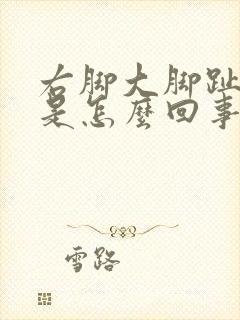 右脚大脚趾
是怎麼回事
雪路